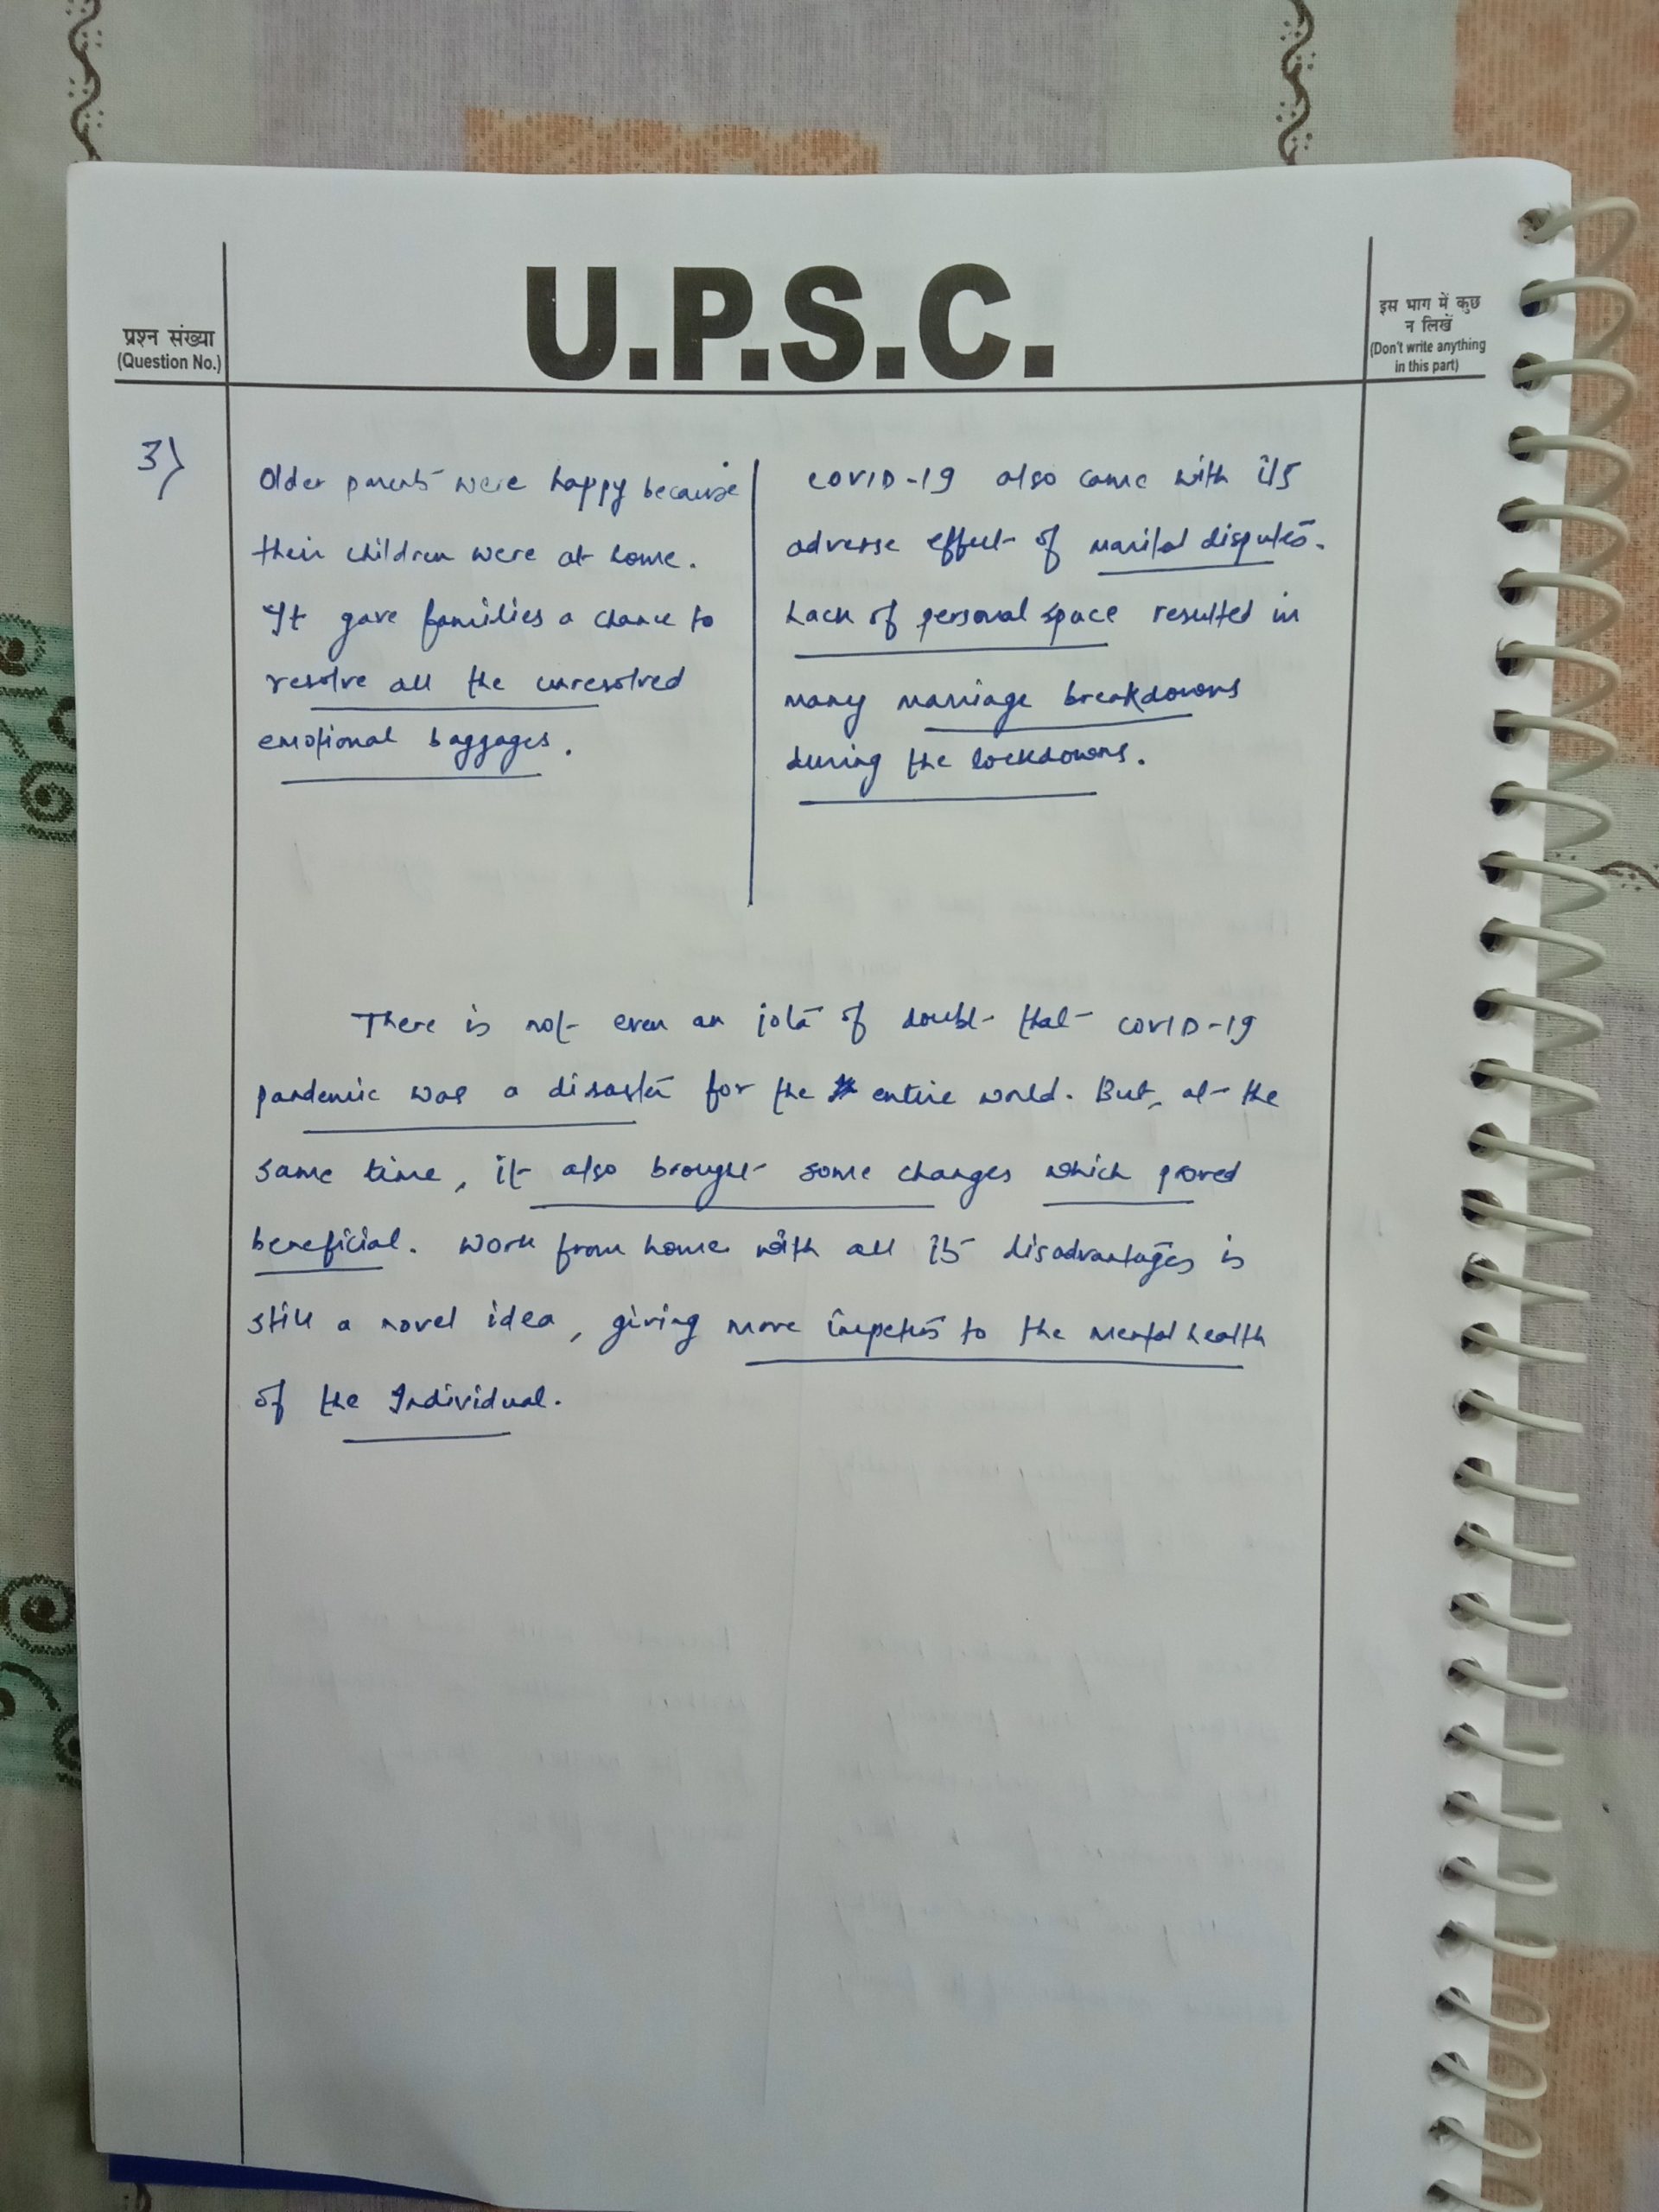 U.P.S.C.
प्रश्न संख्या
(Question No.)
इस भाग में कुछ
न लिखें
(Don't write anything
in this part)
3)
Older parents were happy because
their children were at home.
It gave families a chance to
resolve all the unresolved
emotional baggages.
COVID-19 also came with its
adverse effect of marital disputes.
Lack of personal space resulted in
many marriage breakdowns
during the lockdowns.
There is not even an iota of doubt that COVID-19
pandemic was a disaster for the entire world. But, at the
same time, it also brought some changes which proved
beneficial. Work from home with all its disadvantages is
still a novel idea, giving more impetus to the mental health
of the Individual.